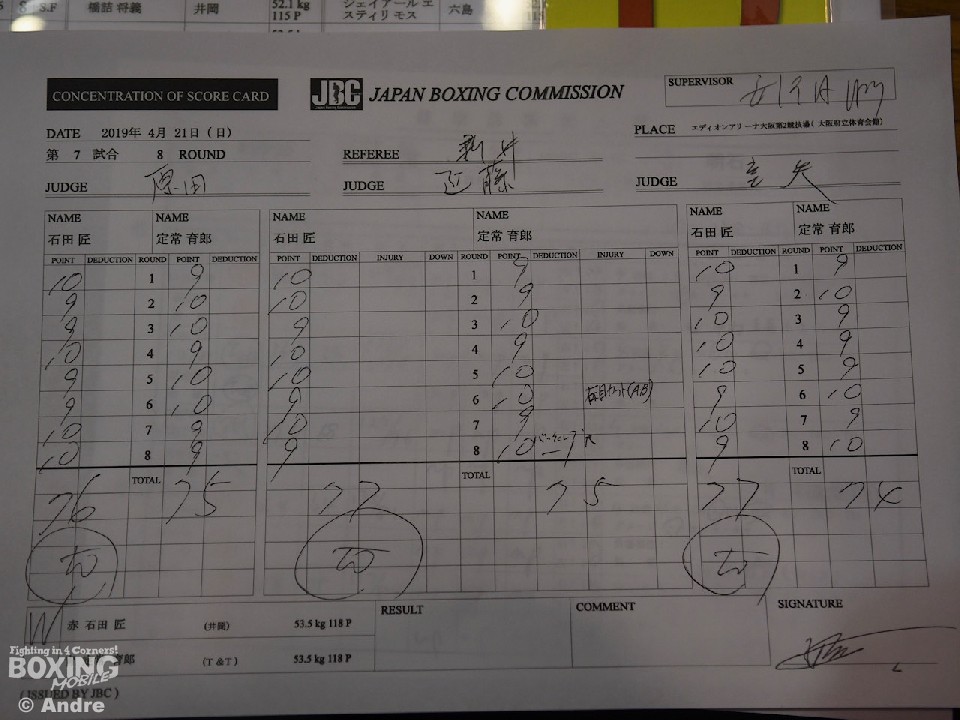 S.F 橋詰 将義 井岡 52.1 kg 115 P ジェイアール エスティリ モス 六島
CONCENTRATION OF SCORE CARD JBC JAPAN BOXING COMMISSION SUPERVISOR
DATE 2019年 4月 21日（日） PLACE エディオンアリーナ大阪第2競技場( 大阪府立体育会館)
第 7 試合 8 ROUND REFEREE 新井
JUDGE 原田 JUDGE 近藤 JUDGE
NAME NAME NAME NAME NAME NAME
石田 匠 定常 育郎 石田 匠 定常 育郎 石田 匠 定常 育郎
POINT DEDUCTION ROUND POINT DEDUCTION POINT DEDUCTION INJURY DOWN ROUND POINT DEDUCTION INJURY DOWN POINT DEDUCTION ROUND POINT DEDUCTION
10 1 9 10 1 9 10 1 9
9 2 10 10 2 9 9 2 10
9 3 10 9 3 10 10 3 9
10 4 9 10 4 9 10 4 9
9 5 10 10 5 10 10 5 9
9 6 10 9 6 10 9 6 10
10 7 9 10 7 9 10 7 9
10 8 9 9 8 10 9 8 10
TOTAL TOTAL TOTAL
76 75 77 75 77 74
W 赤 石田 匠 (井岡) 53.5 kg 118 P RESULT COMMENT SIGNATURE
育郎 (T &T) 53.5 kg 118 P
Fighting in 4 Corners!
BOXING
MOBILE
( ISSUED BY JBC )
© Andre